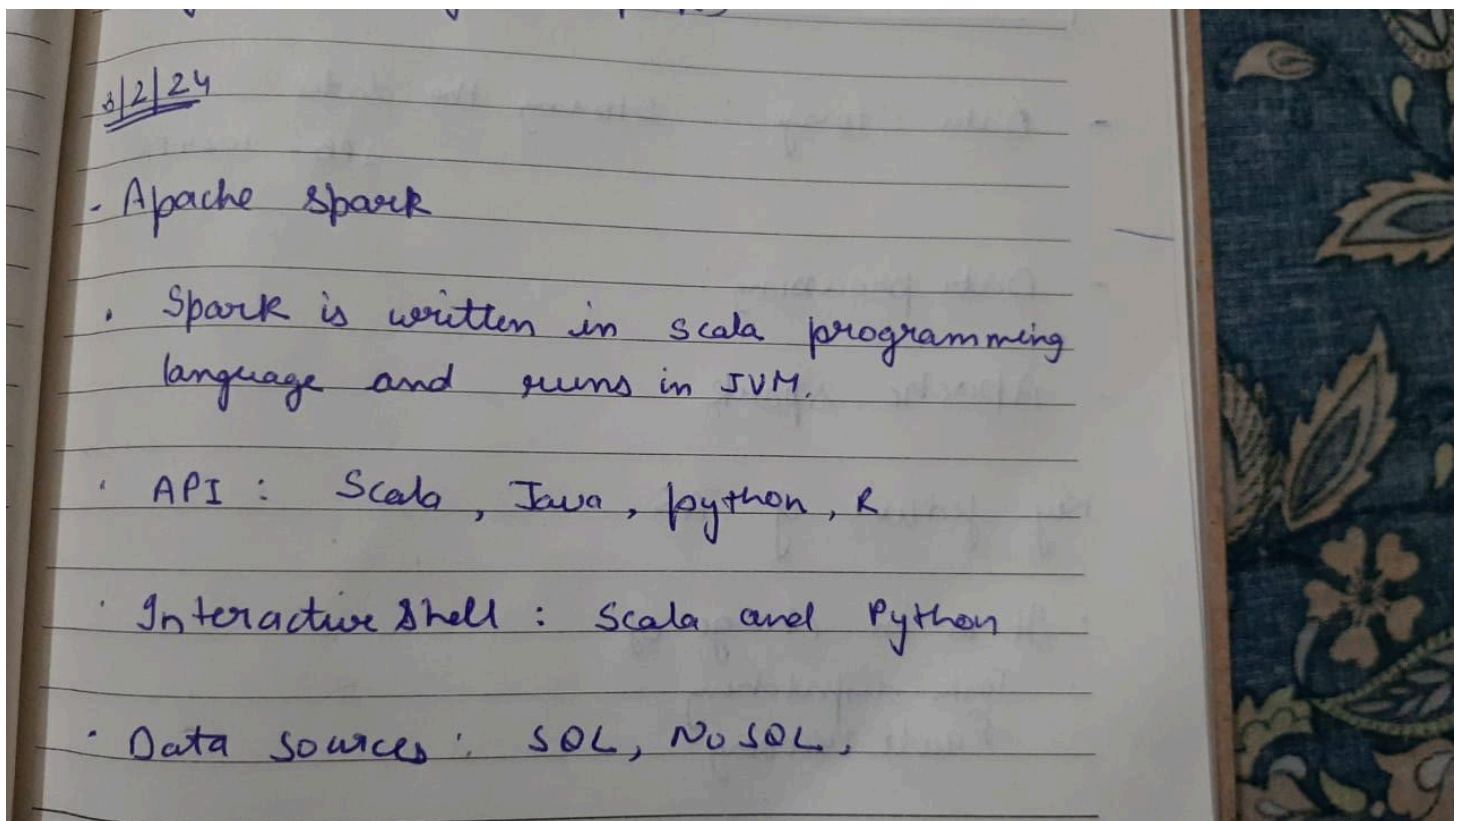 3/2/24
- Apache Spark
. Spark is written in scala programming
language and runs in JVM.
· API : Scala, Java, python, R
· Interactive Shell : Scala and Python
· Data sources : SQL, NoSQL,